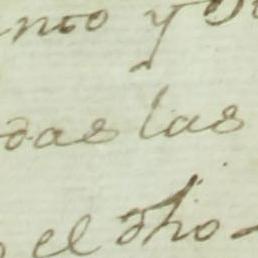 nto y
das las
el dho